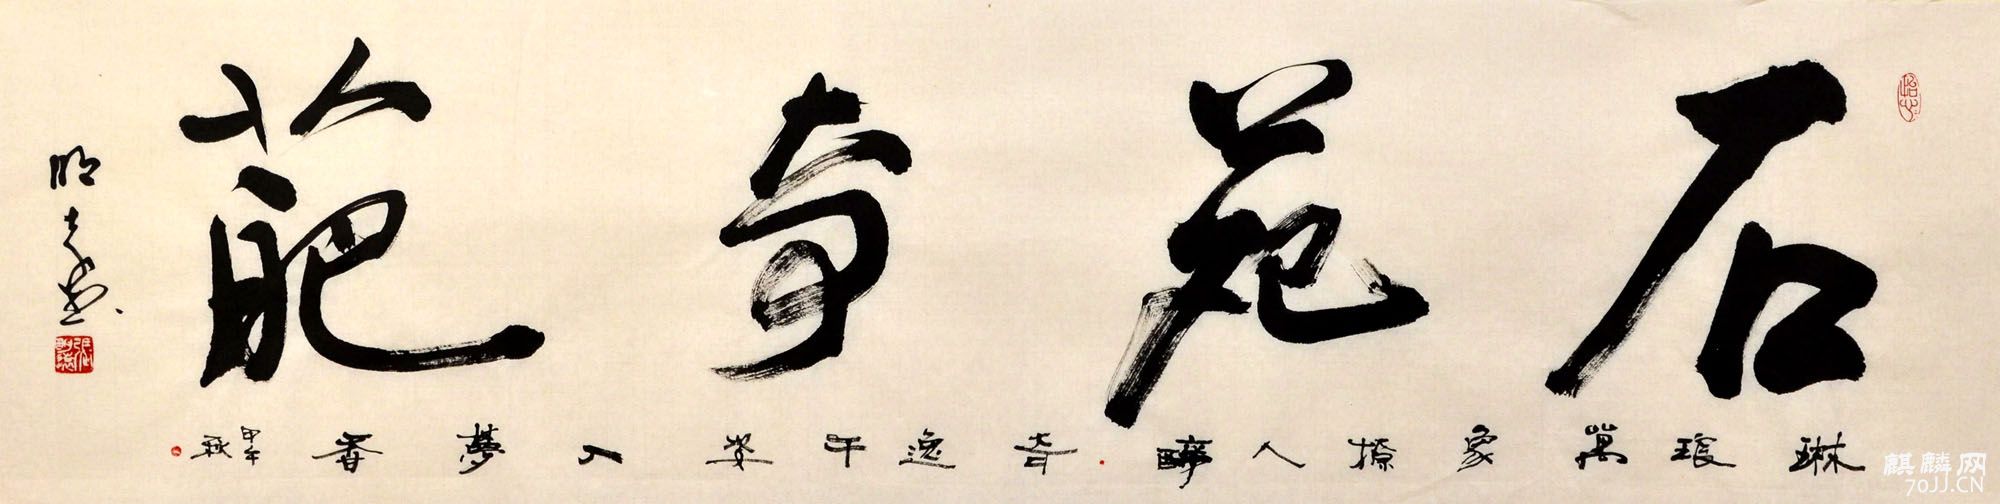 石苑奇葩
琳琅萬象撩人醉奇逸千姿入夢香
甲午秋
麒麟网
70JJ.CN